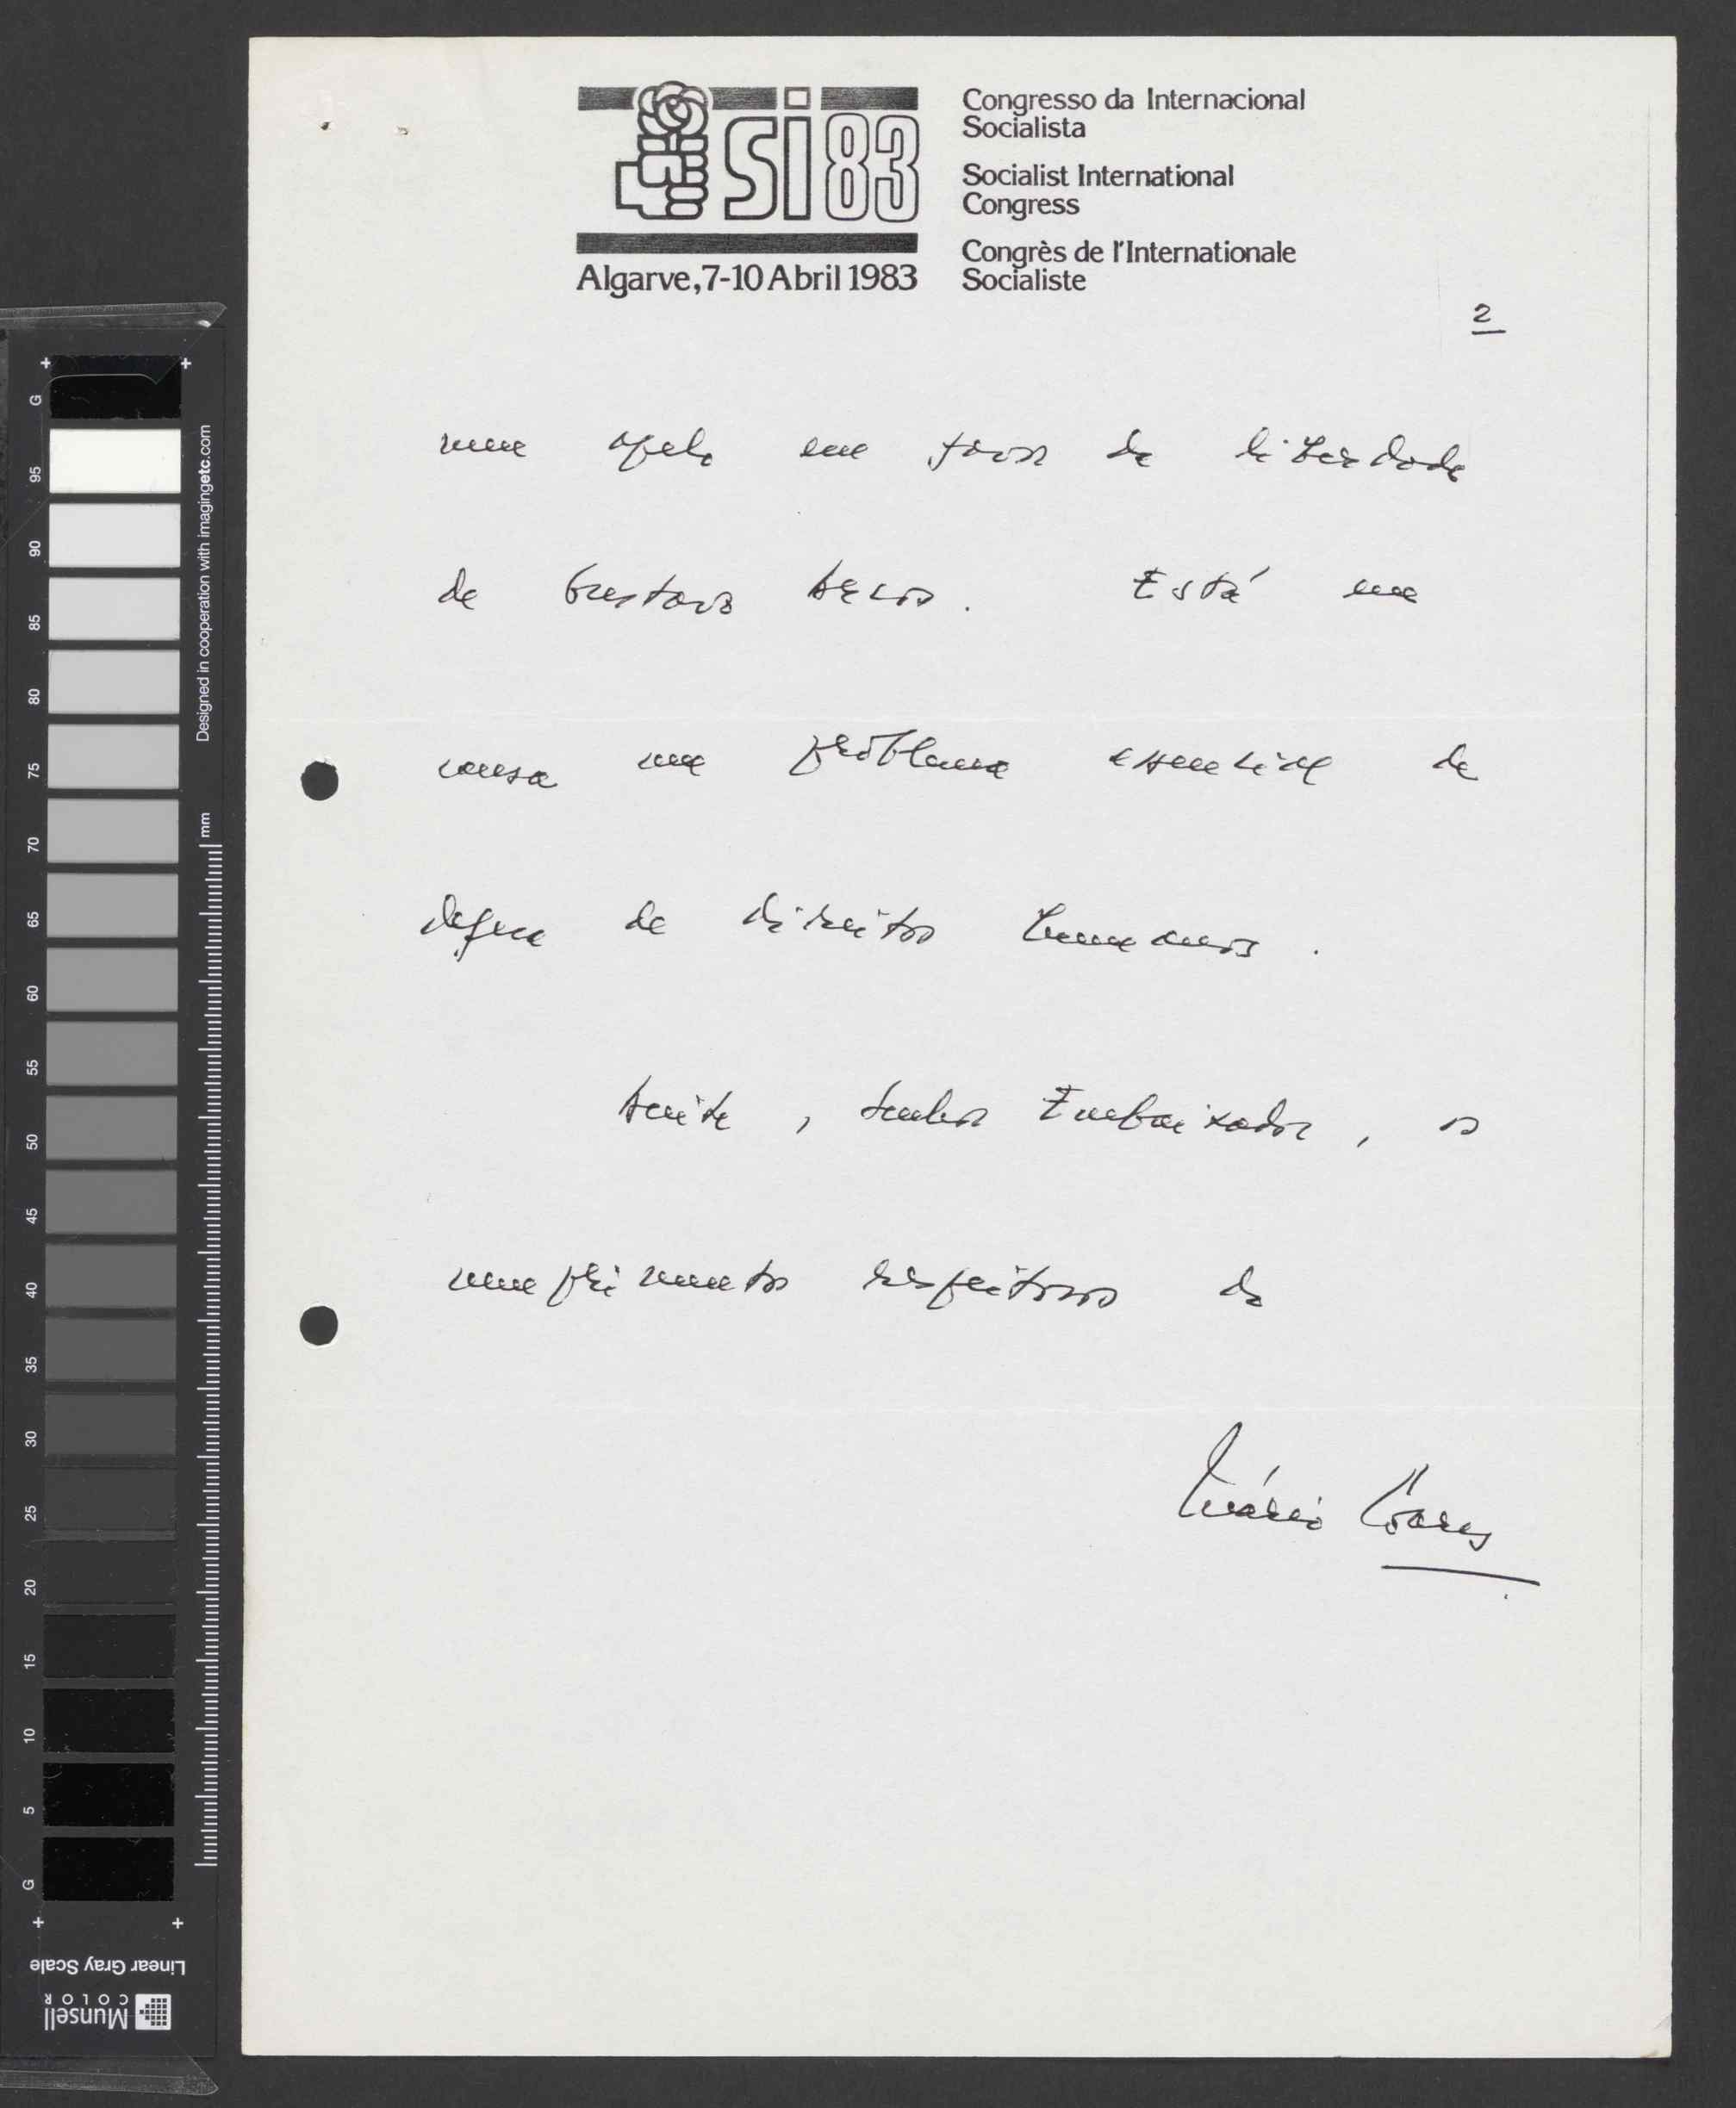 SI 83
Algarve, 7-10 Abril 1983
Congresso da Internacional
Socialista
Socialist International
Congress
Congrès de l'Internationale
Socialiste
2
um apelo em favor da liberdade
de Gustavo Arcos. Está em
causa um problema essencial de
defesa de direitos humanos.
Aceite, Senhor Embaixador, os
cumprimentos respeitosos do
Mário Soares
Designed in cooperation with imagingetc.com
mm
G
95
90
85
80
75
70
65
60
55
50
45
40
35
30
25
20
15
10
5
G
Linear Gray Scale
Munsell
COLOR